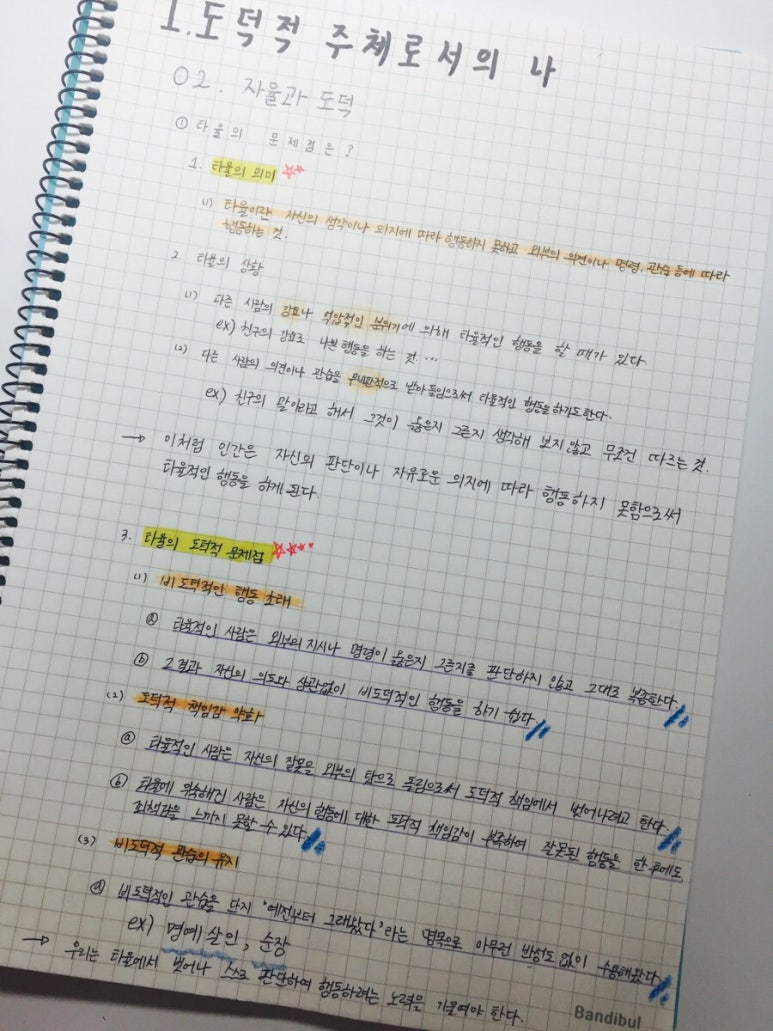 1. 도덕적 주체로서의 나
02. 자율과 도덕
① 타율의 문제점은?
1. 타율의 의미
(1) 타율이란 자신의 생각이나 의지에 따라 행동하지 못하고 외부의 의견이나 명령, 관습 등에 따라
행동하는 것.
2. 타율의 상황
(1) 다른 사람의 강요나 억압적인 분위기에 의해 타율적인 행동을 할 때가 있다.
ex) 친구의 강요로 나쁜 행동을 하는 것 ...
(2) 다른 사람의 의견이나 관습을 무비판적으로 받아들임으로써 타율적인 행동을 하기도 한다.
ex) 친구의 말이라고 해서 그것이 옳은지 그른지 생각해 보지 않고 무조건 따르는 것.
→ 이처럼 인간은 자신의 판단이나 자유로운 의지에 따라 행동하지 못함으로써
타율적인 행동을 하게 된다.
3. 타율의 도덕적 문제점
(1) 비도덕적인 행동 초래
ⓐ 타율적인 사람은 외부의 지시나 명령이 옳은지 그른지를 판단하지 않고 그대로 복종한다.
ⓑ 그 결과 자신의 의도와 상관없이 비도덕적인 행동을 하기 쉽다.
(2) 도덕적 책임감 약화
ⓐ 타율적인 사람은 자신의 잘못을 외부의 탓으로 돌림으로써 도덕적 책임에서 벗어나려고 한다.
ⓑ 타율에 익숙해진 사람은 자신의 행동에 대한 도덕적 책임감이 부족하여 잘못된 행동을 한 후에도
죄책감을 느끼지 못할 수 있다.
(3) 비도덕적 관습의 유지
ⓐ 비도덕적인 관습을 단지 '예전부터 그래왔다'라는 명목으로 아무런 반성도 없이 수용해왔다.
ex) 명예 살인, 순장
→ 우리는 타율에서 벗어나 스스로 판단하여 행동하려는 노력을 기울여야 한다.
Bandibul